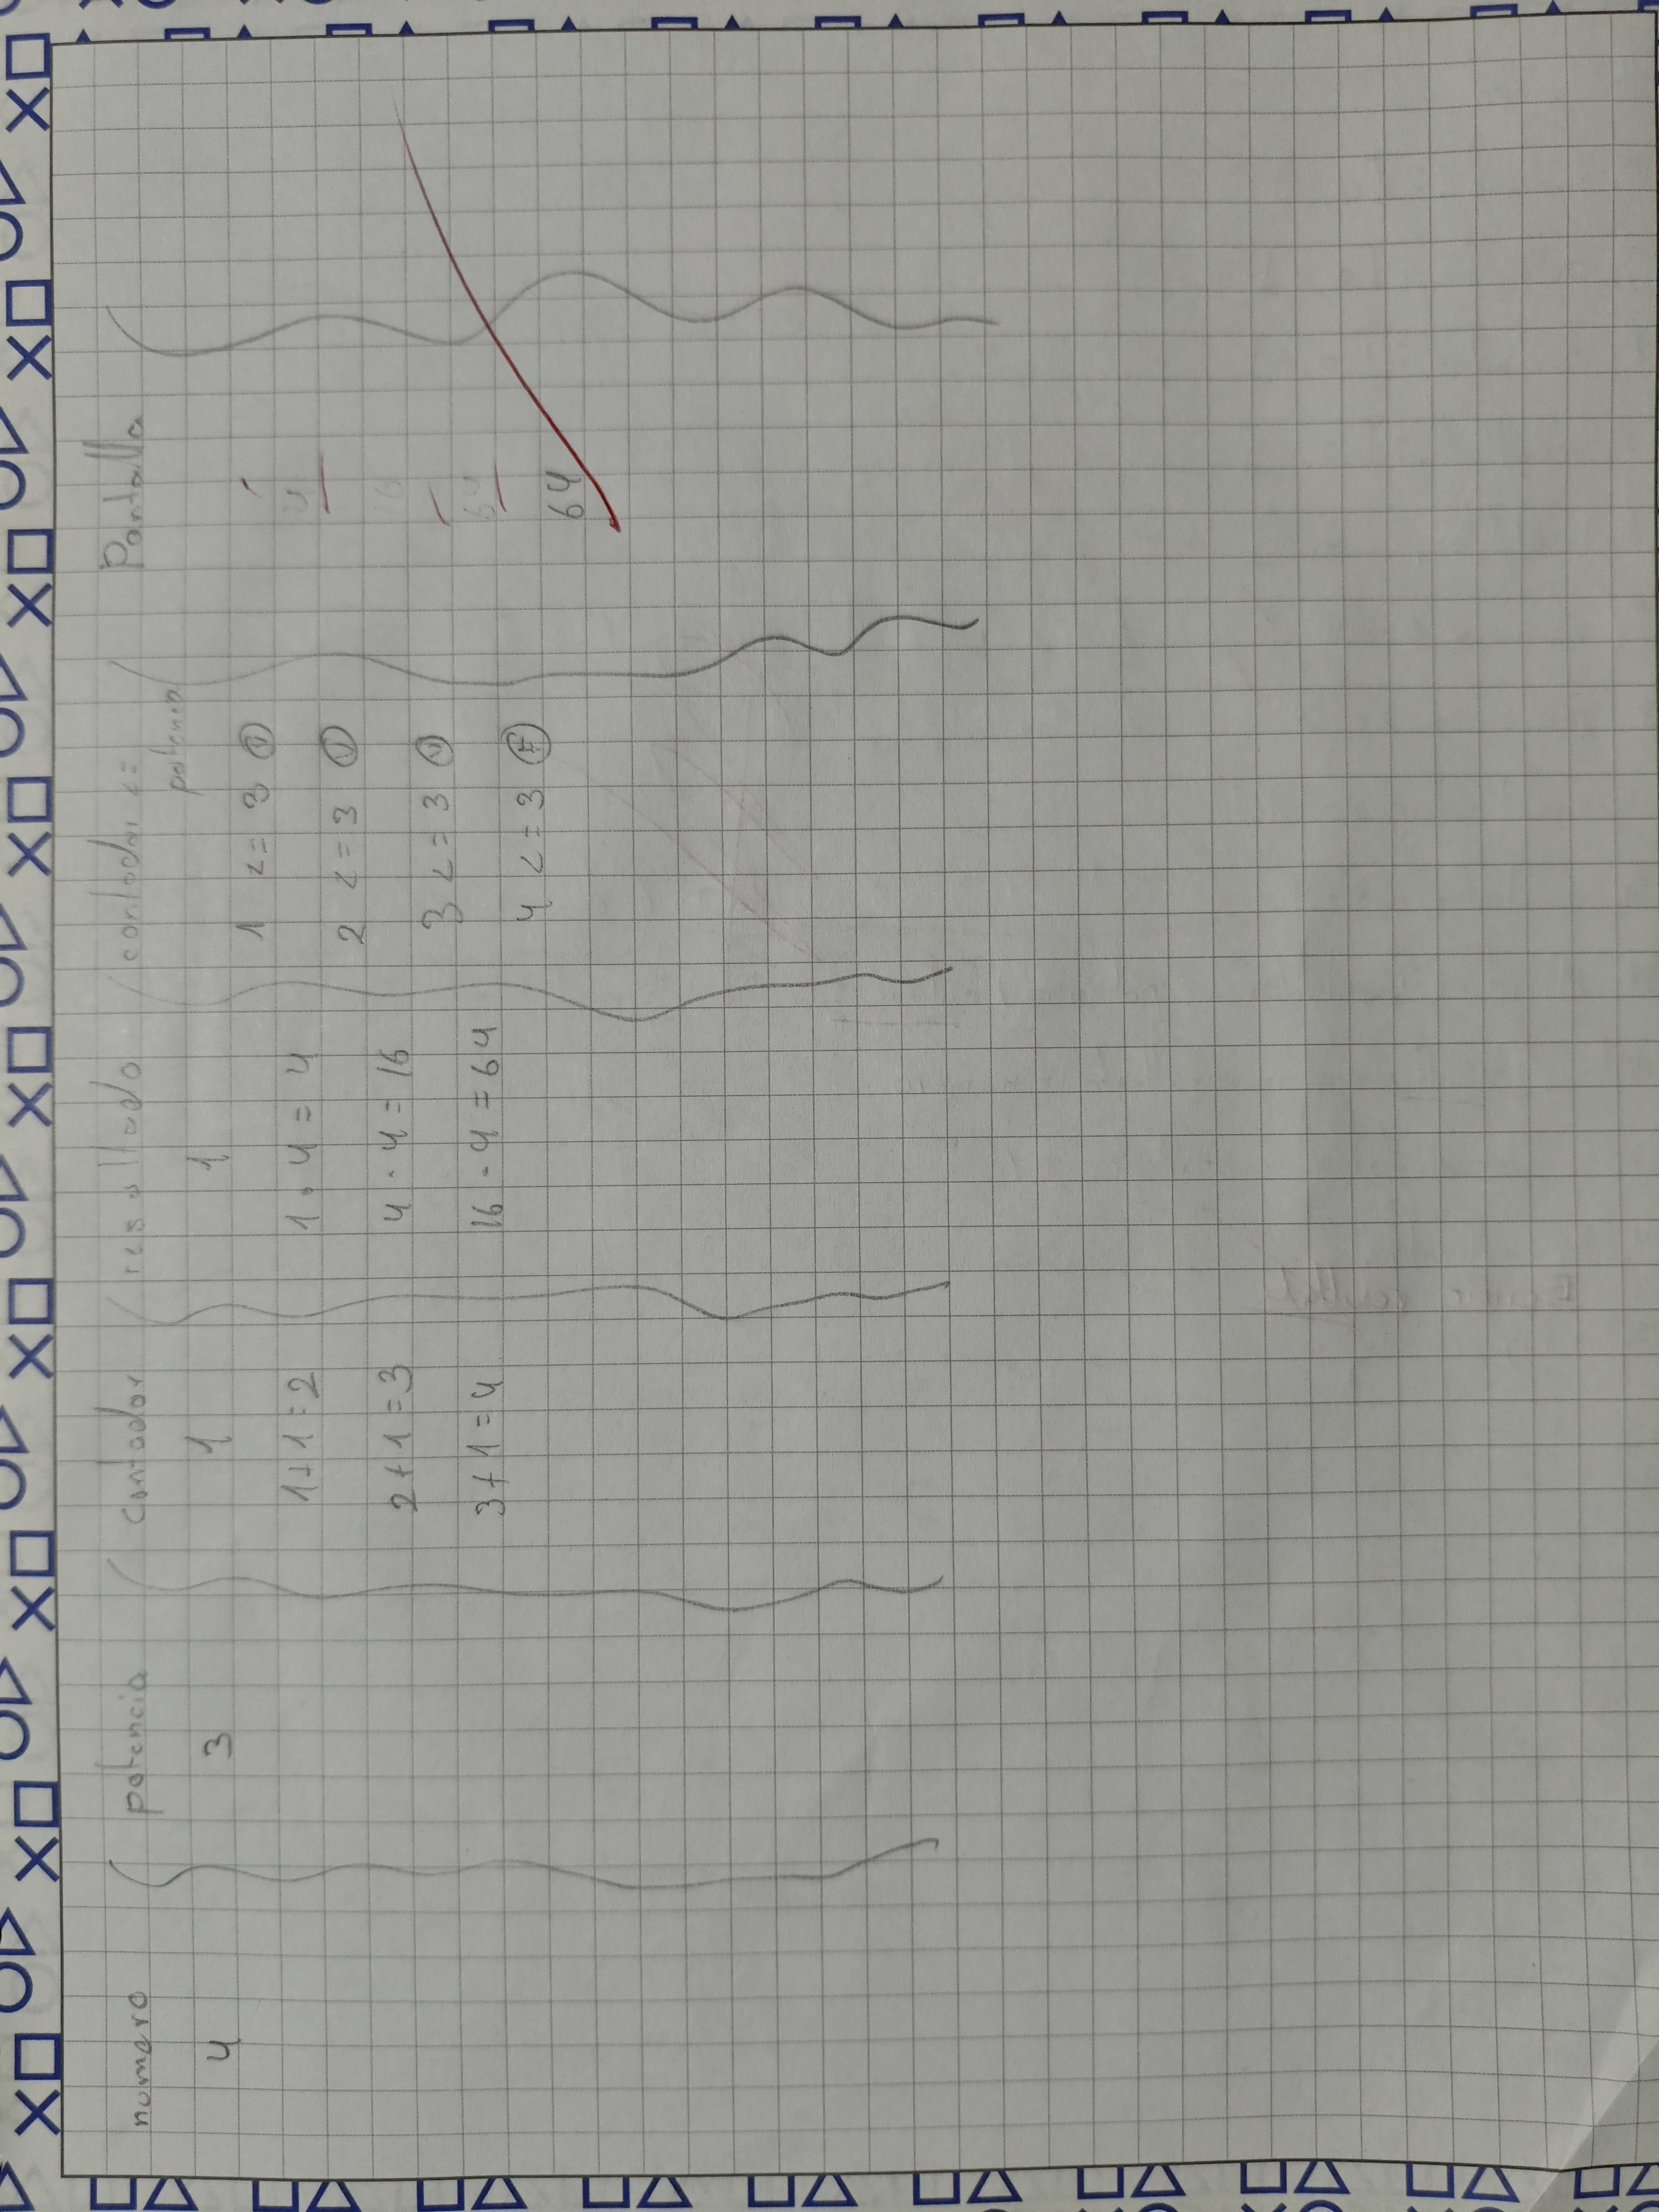 numero potencia contador resultado contador <= Pantalla
potencia
4 3 1 1
1 <= 3 V
1+1=2 1 · 4 = 4
2 <= 3 V
2+1=3 4 · 4 = 16
3 <= 3 V
3+1=4 16 · 4 = 64
4 <= 3 F 64